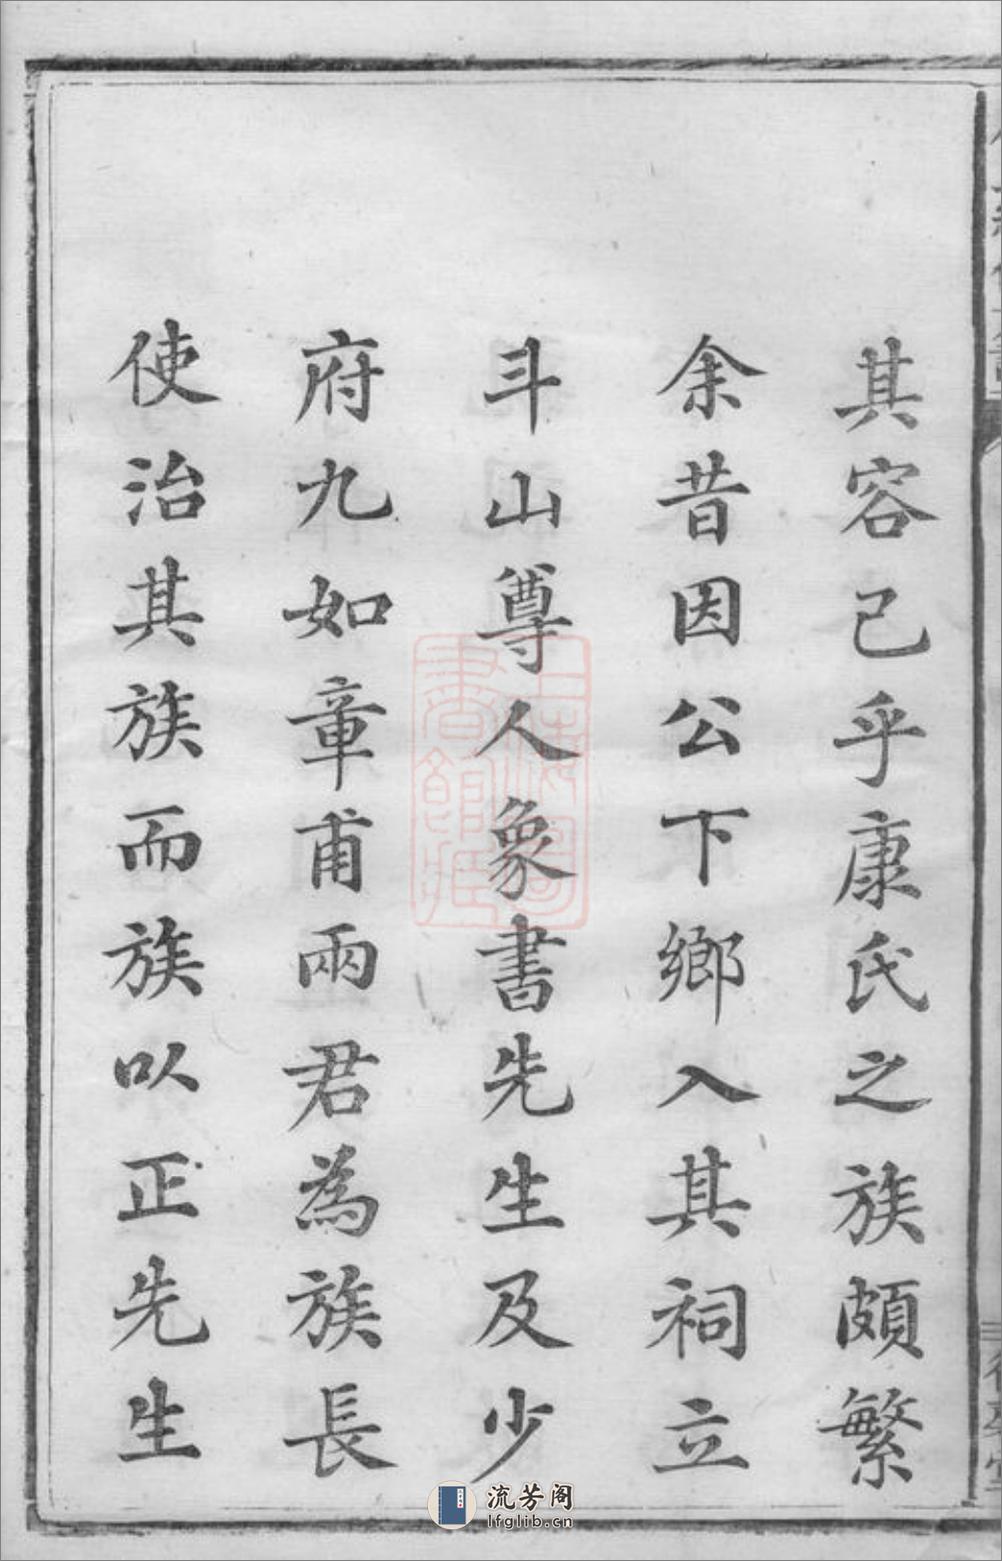 其容已乎康氏之族頗繁
余昔因公下鄉入其祠立
斗山尊人象書先生及少
府九如章甫兩君為族長
使治其族而族以正先生
流芳阁
lfglib.cn